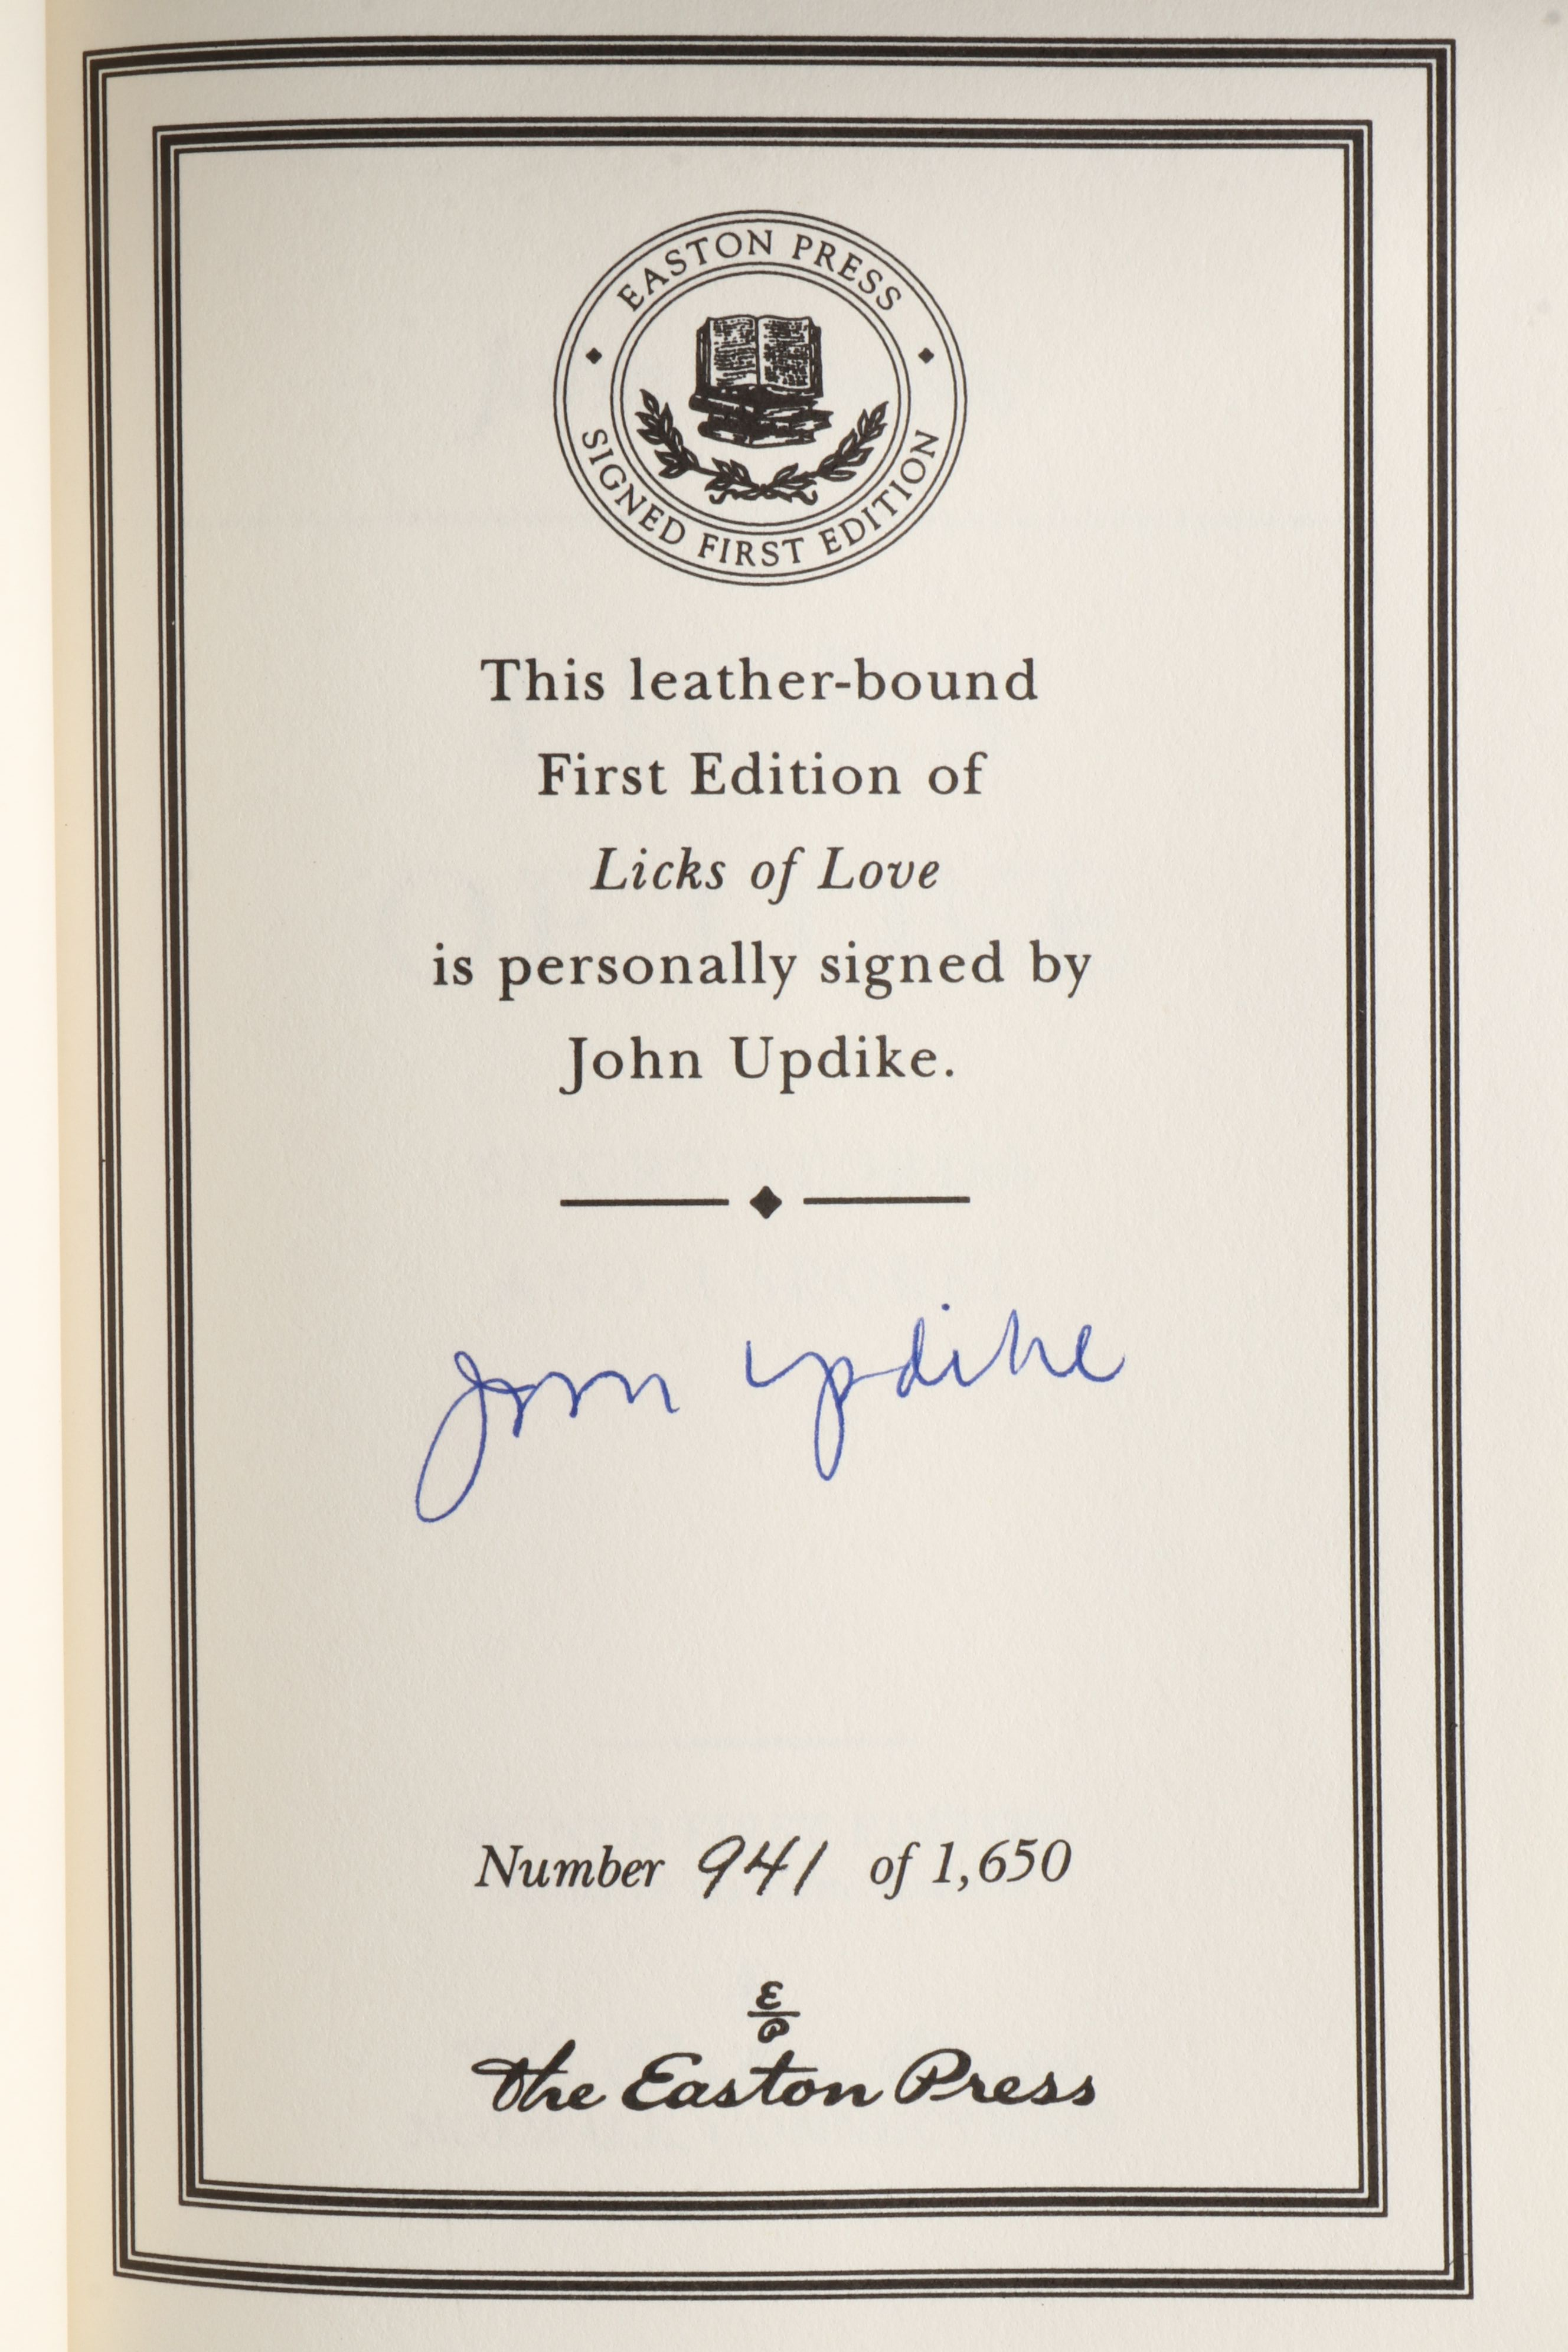 EASTON PRESS
SIGNED FIRST EDITION
This leather-bound
First Edition of
Licks of Love
is personally signed by
John Updike.
John Updike
Number 941 of 1,650
E
P
The Easton Press